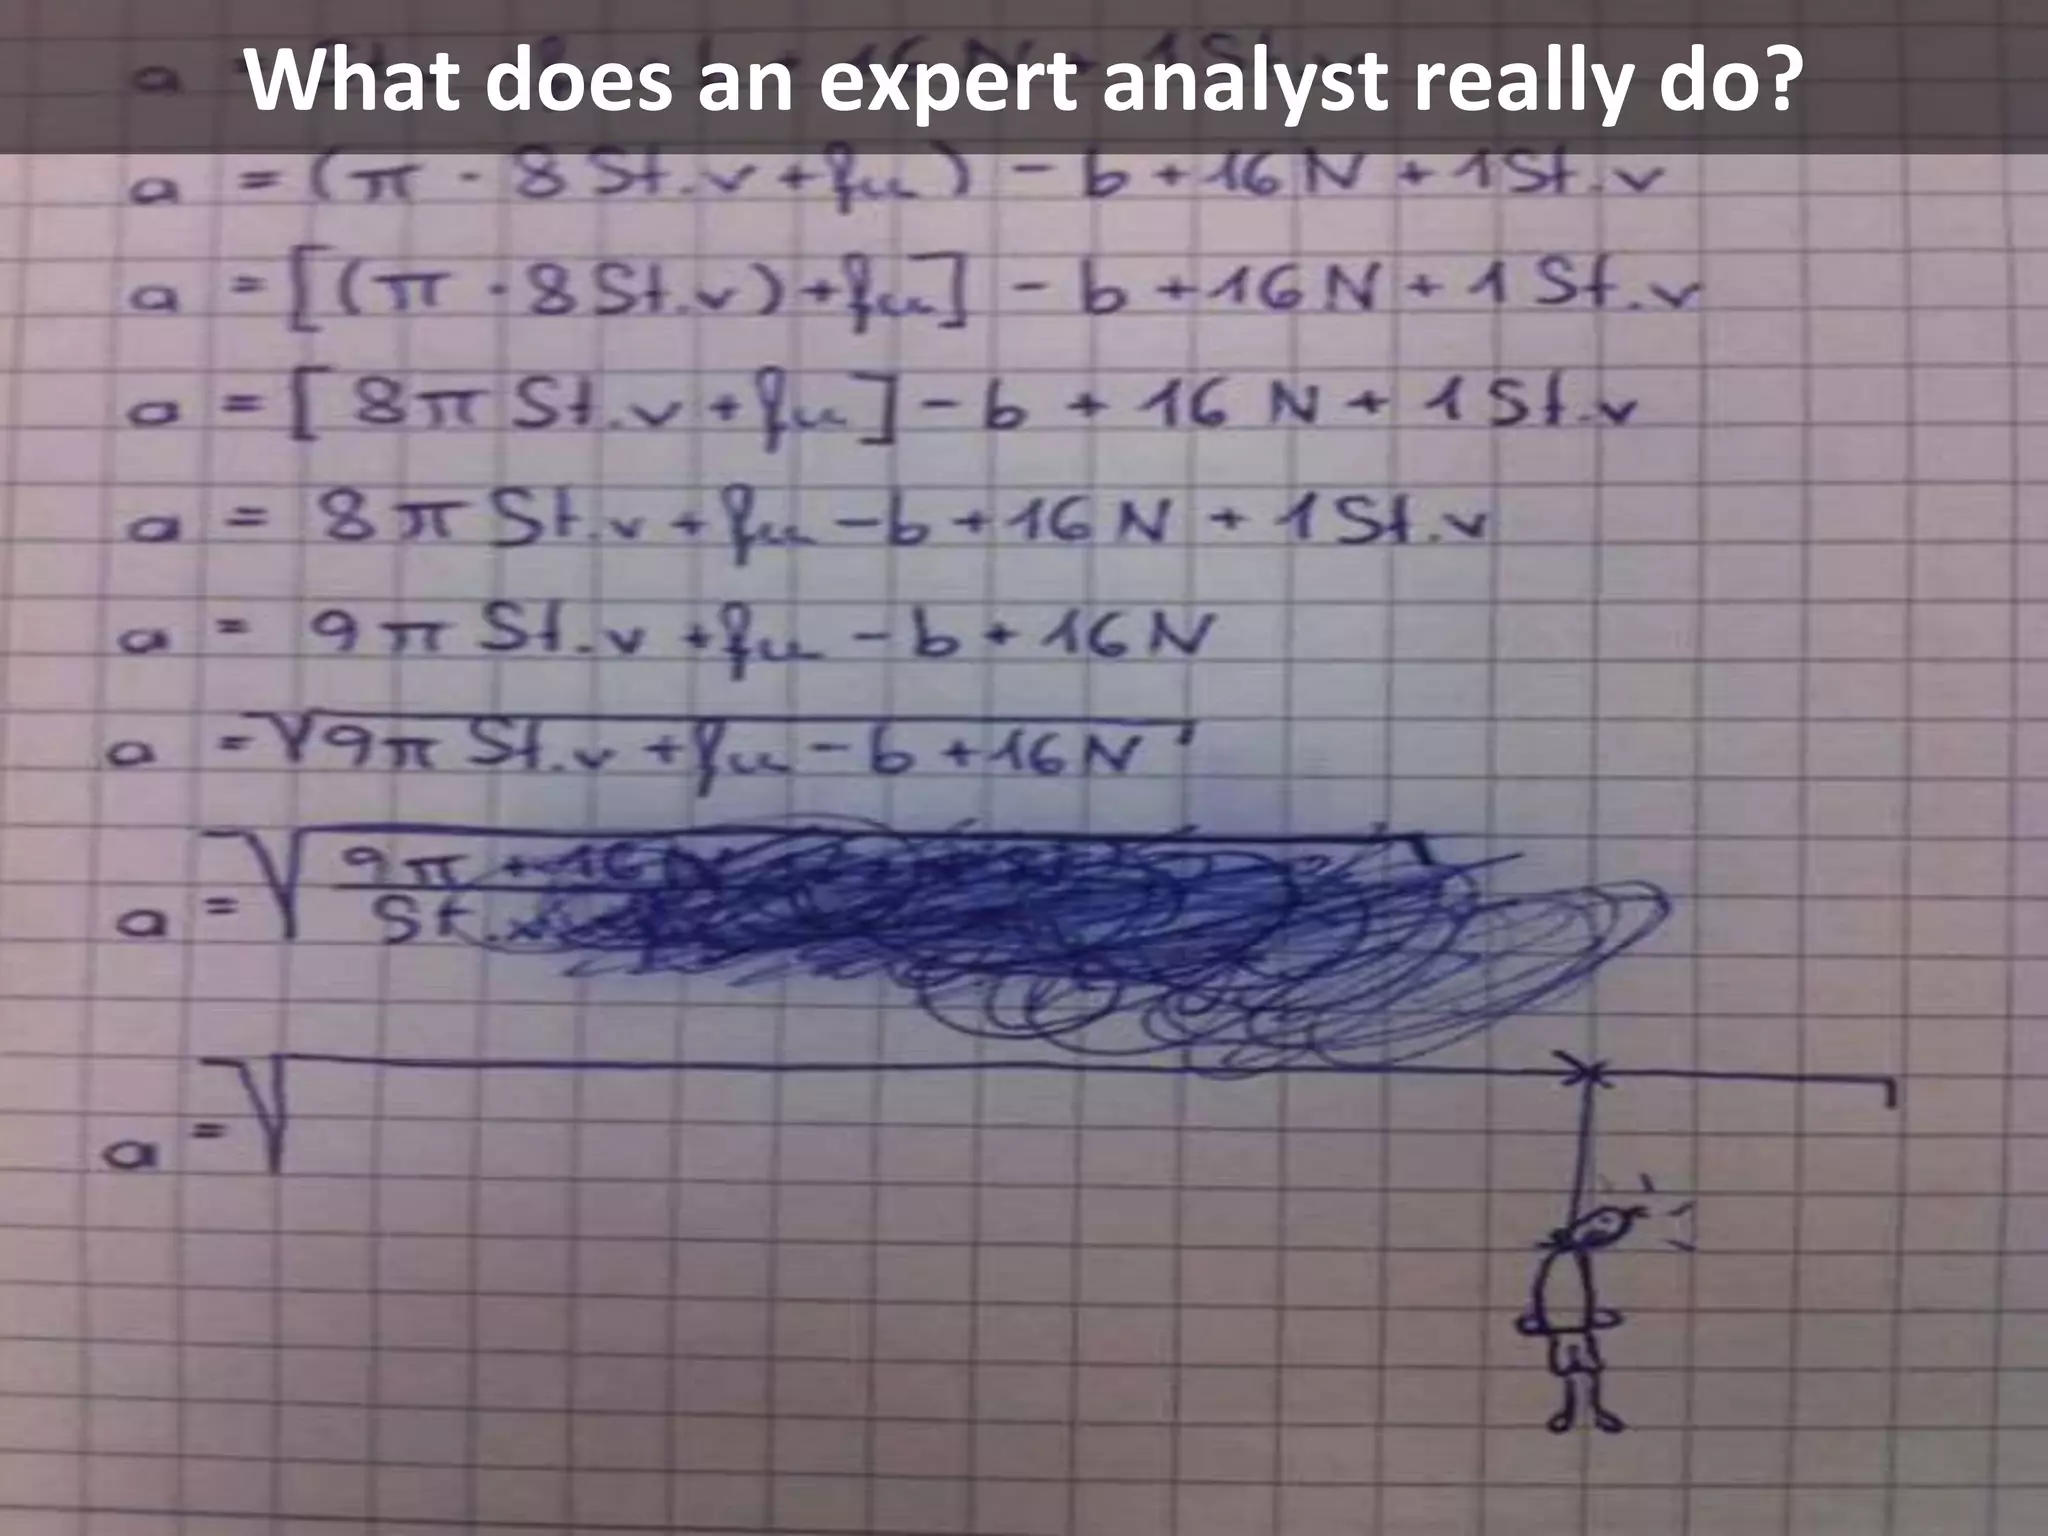 What does an expert analyst really do?
a = (π · 8 St.v + fu) - b + 16 N + 1 St.v
a = [(π · 8 St.v) + fu] - b + 16 N + 1 St.v
a = [8 π St.v + fu] - b + 16 N + 1 St.v
a = 8 π St.v + fu - b + 16 N + 1 St.v
a = 9 π St.v + fu - b + 16 N
a = √9 π St.v + fu - b + 16 N
a = √9 π + 16
St.
a = √